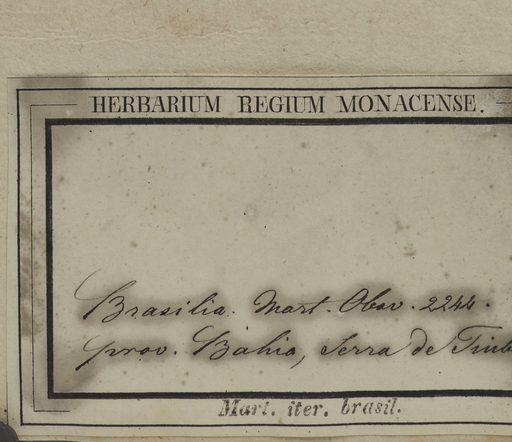 HERBARIUM REGIUM MONACENSE.
Brasilia. Mart. Obsv. 2244.
prov. Bahia, Serra de
Mart. iter. brasil.